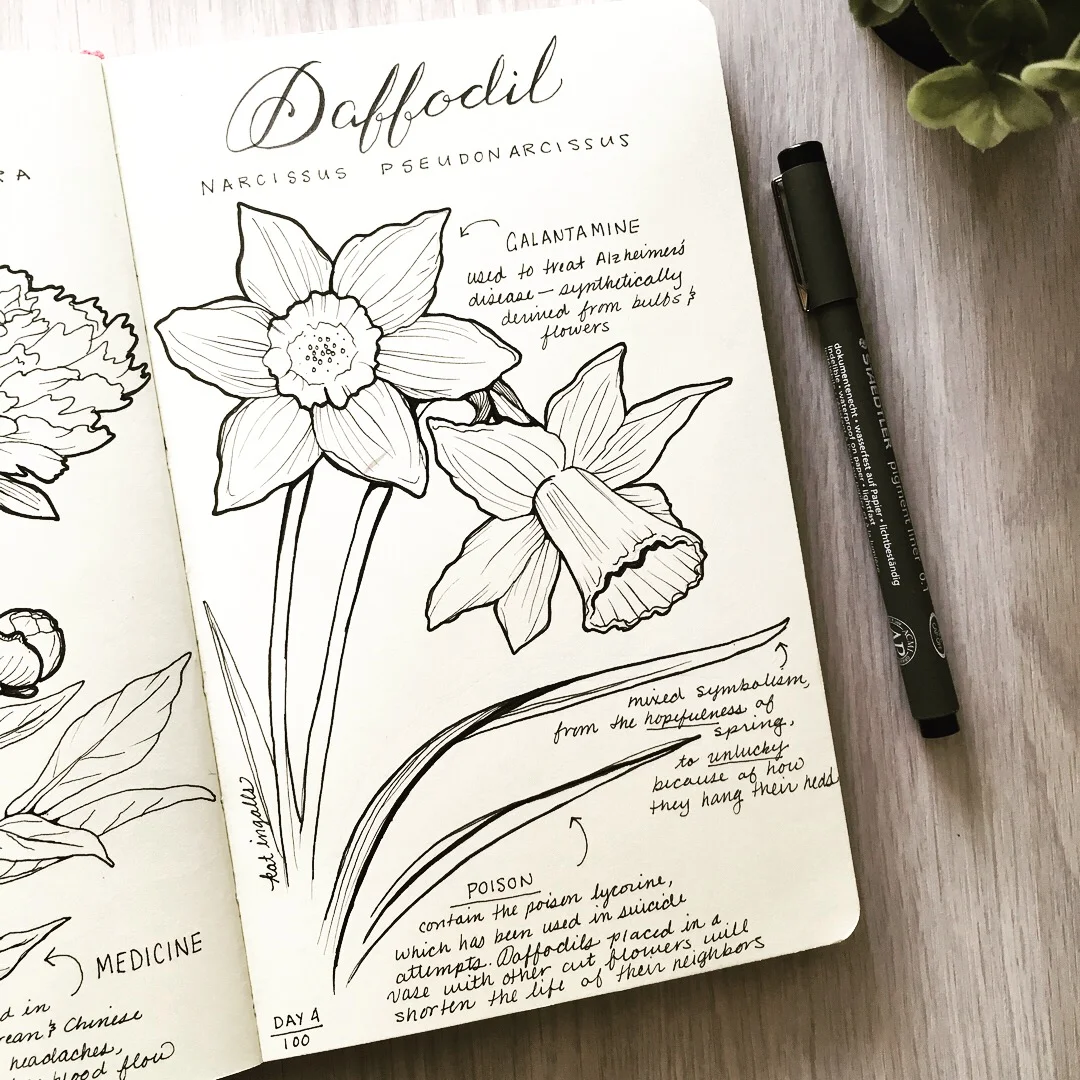 Daffodil
NARCISSUS PSEUDONARCISSUS
GALANTAMINE
used to treat Alzheimer's
disease — synthetically
derived from bulbs &
flowers
mixed symbolism,
from the hopefulness of
spring,
to unlucky
because of how
they hang their head
POISON
contain the poison lycorine,
which has been used in suicide
attempts. Daffodils placed in a
vase with other cut flowers will
shorten the life of their neighbors
kat ingalls
DAY 4
100
RA
MEDICINE
d in
rean & Chinese
headaches,
blood flow
STAEDTLER pigment liner 0.1
dokumentenecht • wasserfest auf Papier • lichtbeständig
indelible • waterproof on paper • lightfast